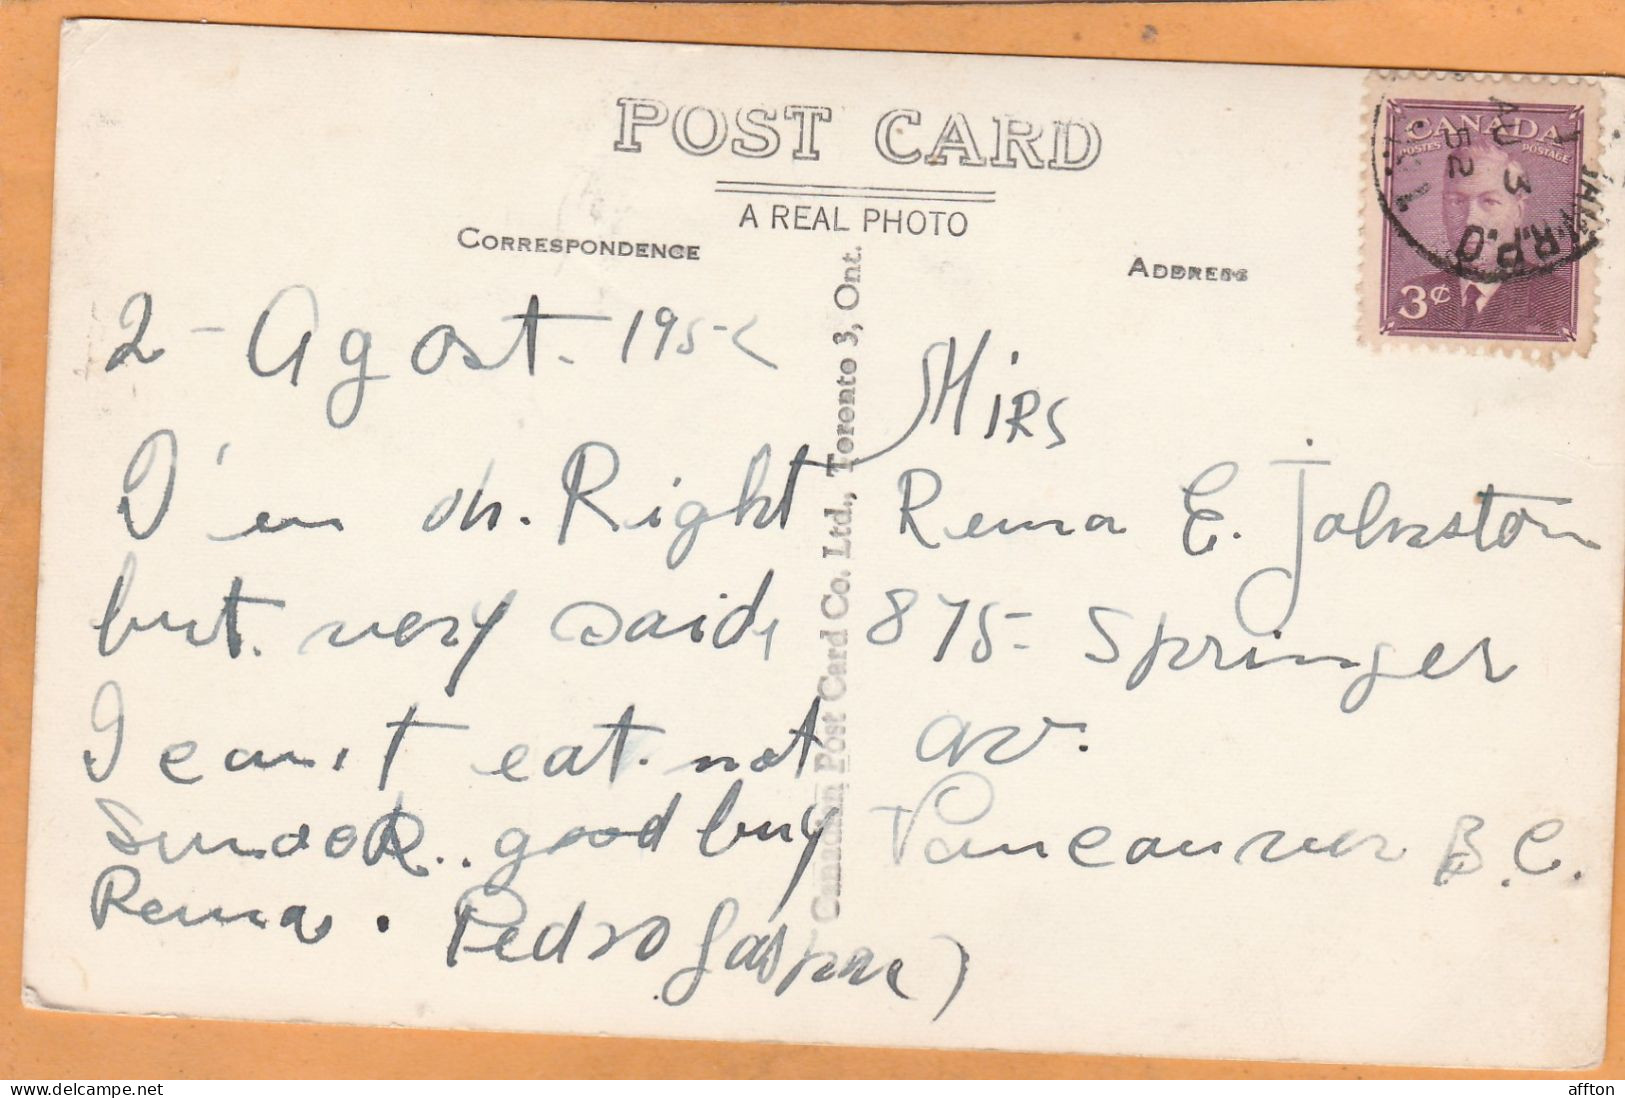 POST CARD
A REAL PHOTO
CORRESPONDENCE
ADDRESS
CANADA
POSTES POSTAGE
3¢
AU 3
52
R.P.O
2 - Agost. 1952
I'em oh. Right
but. very said,
I can't eat. not
good buy
Rema. Pedro Gaspar)
Canadian Post Card Co. Ltd., Toronto 3, Ont.
MIRS
Rema E. Johnston
875- Springer
av.
Vancauver B.C.
affton